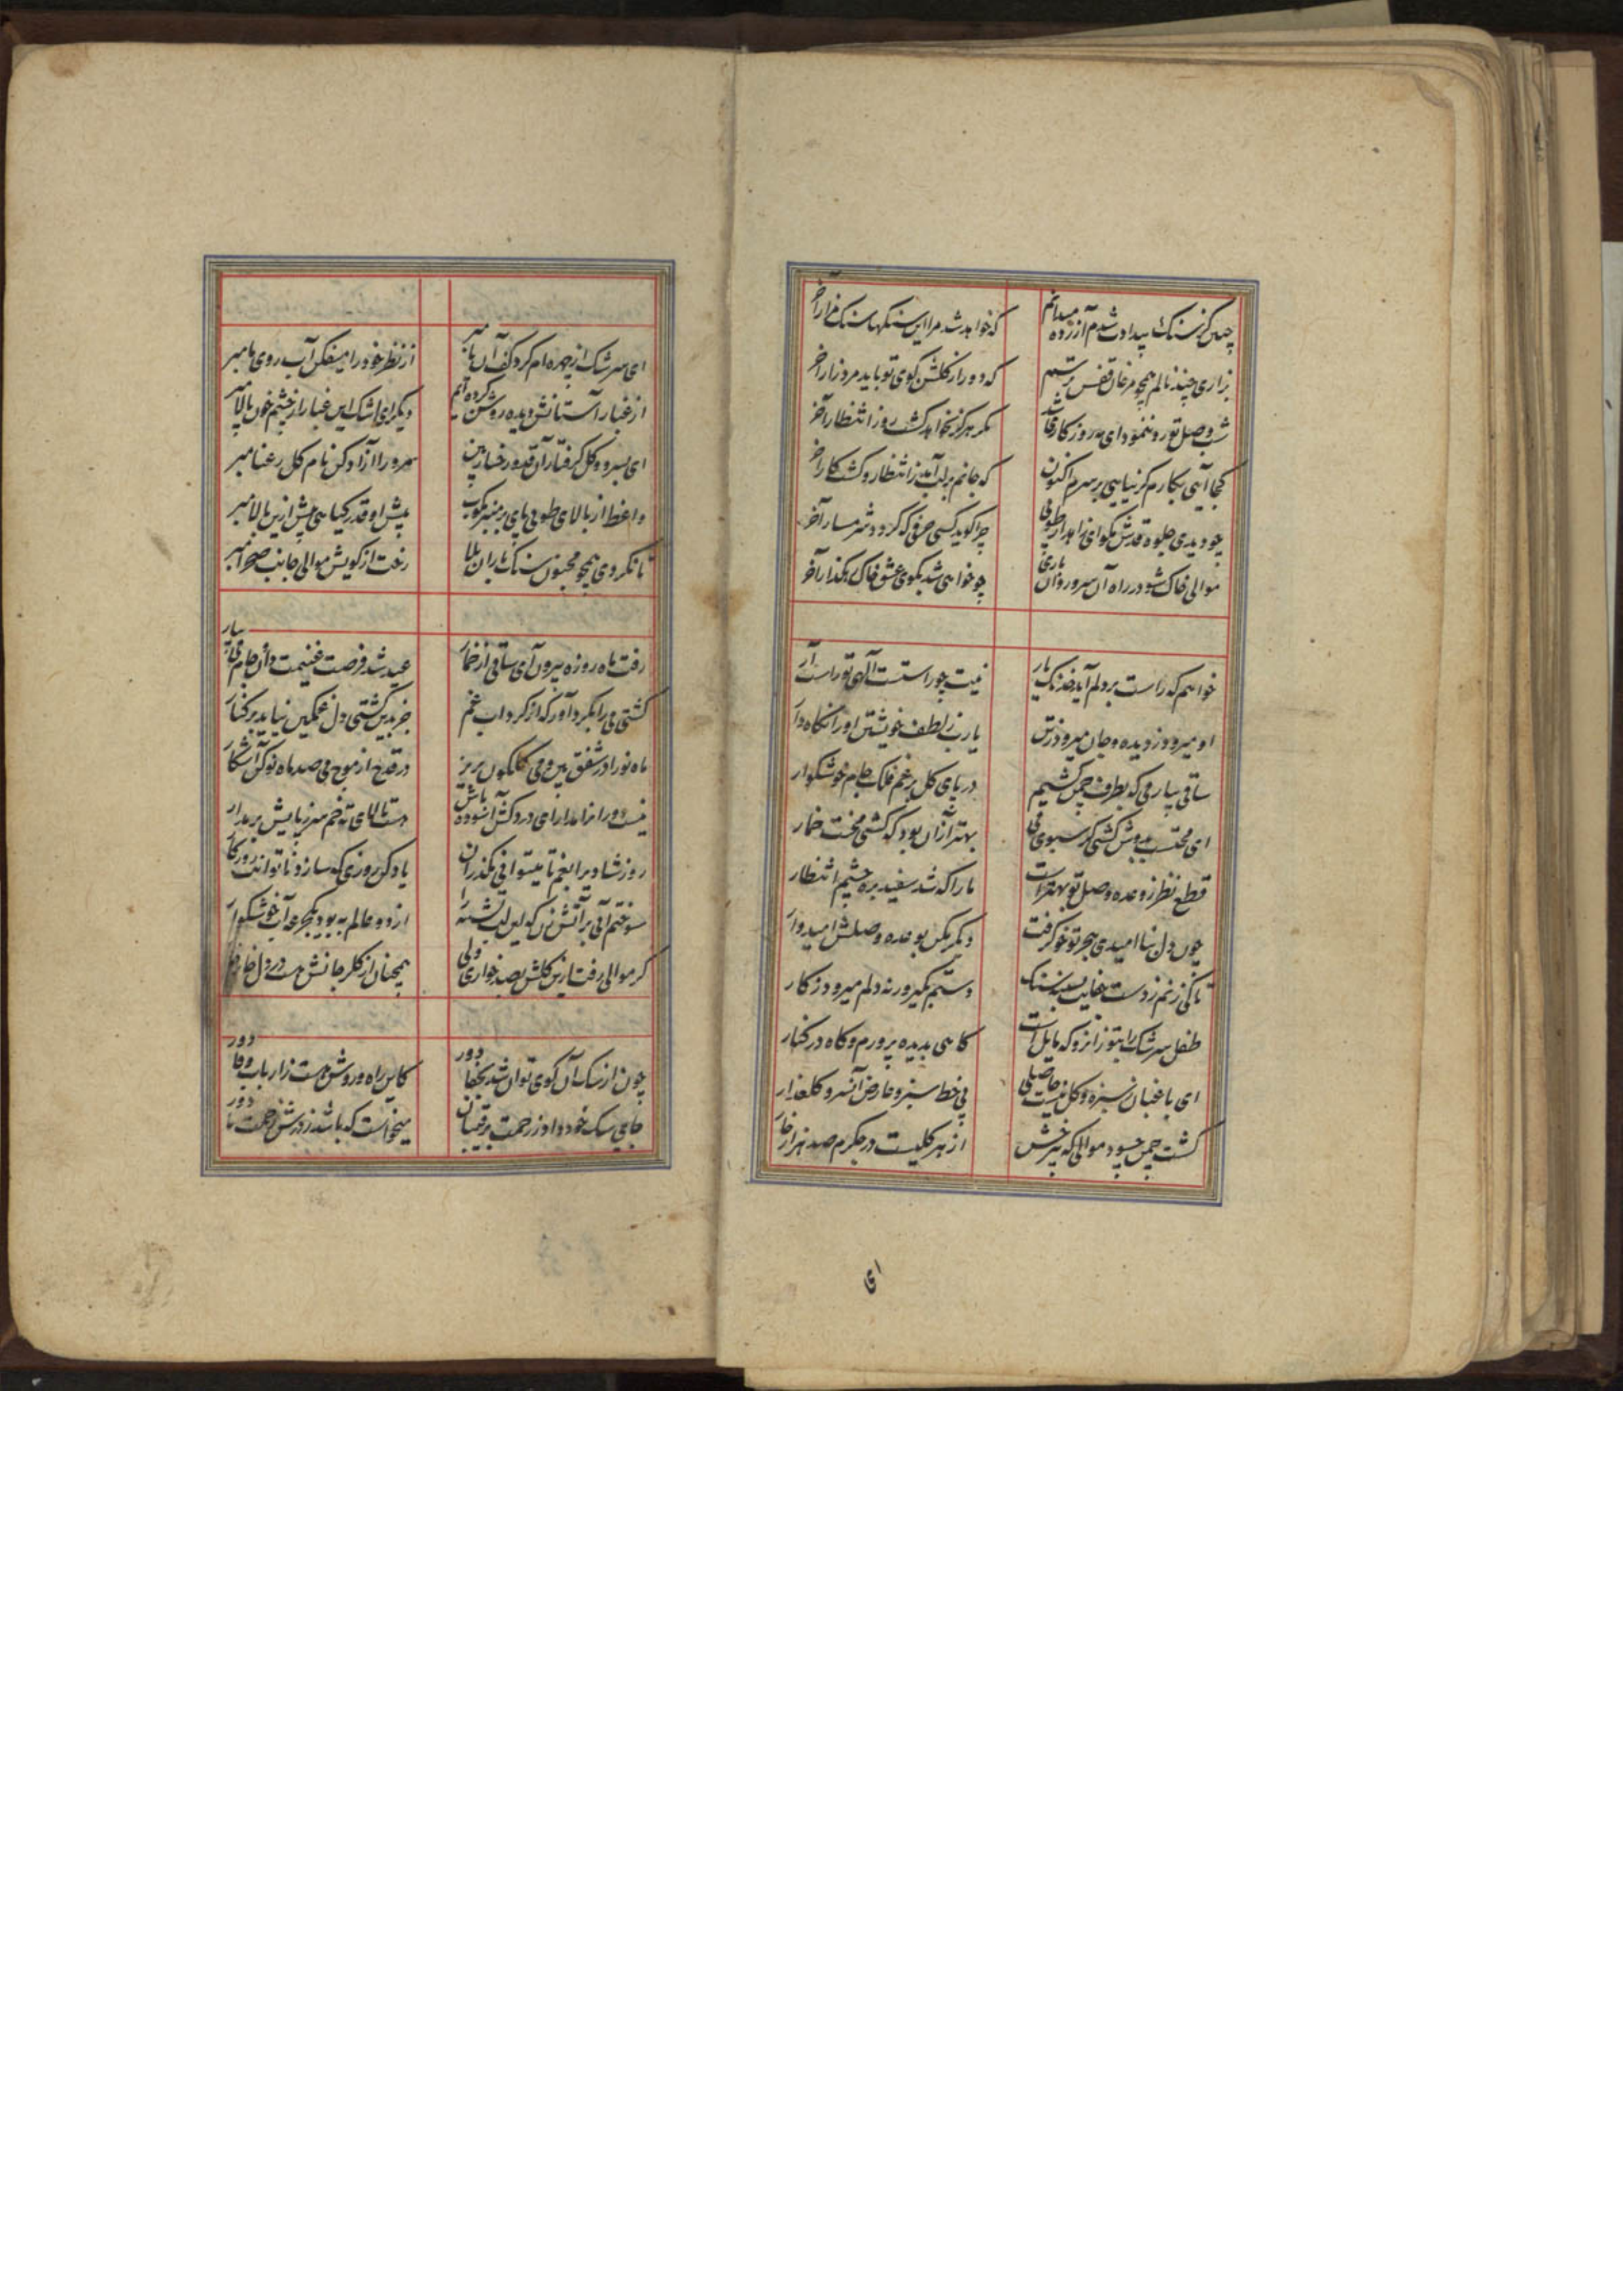 چنین کز سنگ بیدادت شدم آزرده میدانم
که خواهد شد مرا این سنگها سنگ مزار آخر
بزاری چند نالم همچو مرغان قفس
که دور از گلشن کوی تو باید مرد زار آخر
شب وصل تو رو ننمود ای مه روزگاری شد
مگر هرگز نخواهد گشت روز انتظار آخر
کجا آیی بکارم گر نیایی بر سرم اکنون
که جانم بر لب آمد ز انتظار و گشت کار آخر
چو دیدی جلوه قدش مگو ای زاهد از طوبی
چرا گوید کسی حرفی که گردد شرمسار آخر
موالی خاک شو در راه آن سرو روان باری
چو خواهی شد بکوی عشق خاک رهگذار آخر
خواهم که راست بر دلم آید خدنگ یار
نیت چو راستست آلهی تو راست آر
او میرود ز دیده و جان میرود ز تن
یا رب ز لطف خویشتن او را نگاه دار
ساقی بیار می که بطرف چمن کشیم
در پای گل برغم فلک جام خوشگوار
ای محتسب بدوش کشی گر سبوی می
بهتر از آن بود که کشی محنت خمار
قطع نظر ز وعده وصل تو بهتر است
ما را که شد سفید بره چشم انتظار
چون دل بنا امیدی هجر تو خو گرفت
دیگر مکن بوعده وصلش امیدوار
تا کی زنم ز دست بسینه سنگ
دستم بگیر ورنه دلم میرود ز کار
طفل سرشک را بتو زانرو که مایل است
گاهی بدیده پرورم و گاه در کنار
ای باغبان ز سبزه و گل نیست حاصلی
بی خط سبز و عارض آن سرو گلعذار
گشت چمن چسود موالی که بی رخش
از هر گلیست در جگرم صد هزار خار
ای
ای سرشک از چهره‌ام گرد کف آن پا مبر
از نظر خود را میفکن آب روی ما مبر
از غبار آستانش دیده روشن کرده‌ایم
دیگر ای اشک این غبار از چشم خون پالا مبر
ای بسرو و گل گرفتار آن قد و رخسار بین
سرو را آزاد کن نام گل رعنا مبر
واعظ از بالای طوبی پای بر منبر مکوب
پیش او قدر گیاهی بیش ازین بالا مبر
تا نگردی همچو مجنون سنگ باران بلا
رخت از کویش موالی جانب صحرا مبر
رفت ماه روزه بیرون آی ساقی از خمار
عید شد فرصت غنیمت دان جام می بیار
کشتی می را بگرد آور که از گرداب غم
جز بدین کشتی دل غمگین نیاید بر کنار
ماه نو را در شفق بین و می گلگون بریز
در قدح از موج می صد ماه نو کن آشکار
نیست دوران را مدار ای دردکش آسوده باش
دست تا بالای ته خم سر ز پایش بر مدار
روز شادی را بغم تا میتوانی مگذران
یاد کن روزی که سازد ناتوانت روزگار
سوختم آبی بر آتش زن که این لب تشنه را
از دو عالم به بود یکجرعه آب خوشگوار
گر موالی رفت ازین گلشن بصد خواری ولی
همچنان از گلرخانش هست در دل خار خار
چون از سگ آن کوی توان شد بجفا دور
کاین راه و روش هست ز ارباب وفا دور
جامی سگ خود داد ز رحمت برقیبان
میخواست که باشد ز درش زحمت ما دور